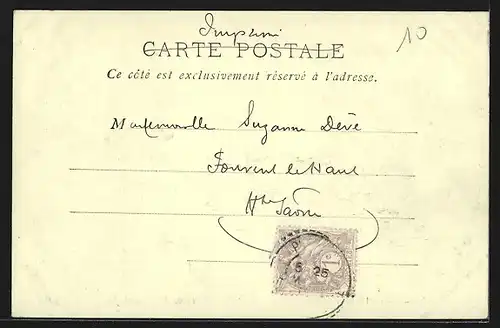 Imprimé
10
CARTE POSTALE
Ce côté est exclusivement réservé à l'adresse.
Mademoiselle Suzanne Dévé
Fouvent le Haut
Hte Saône
5 25